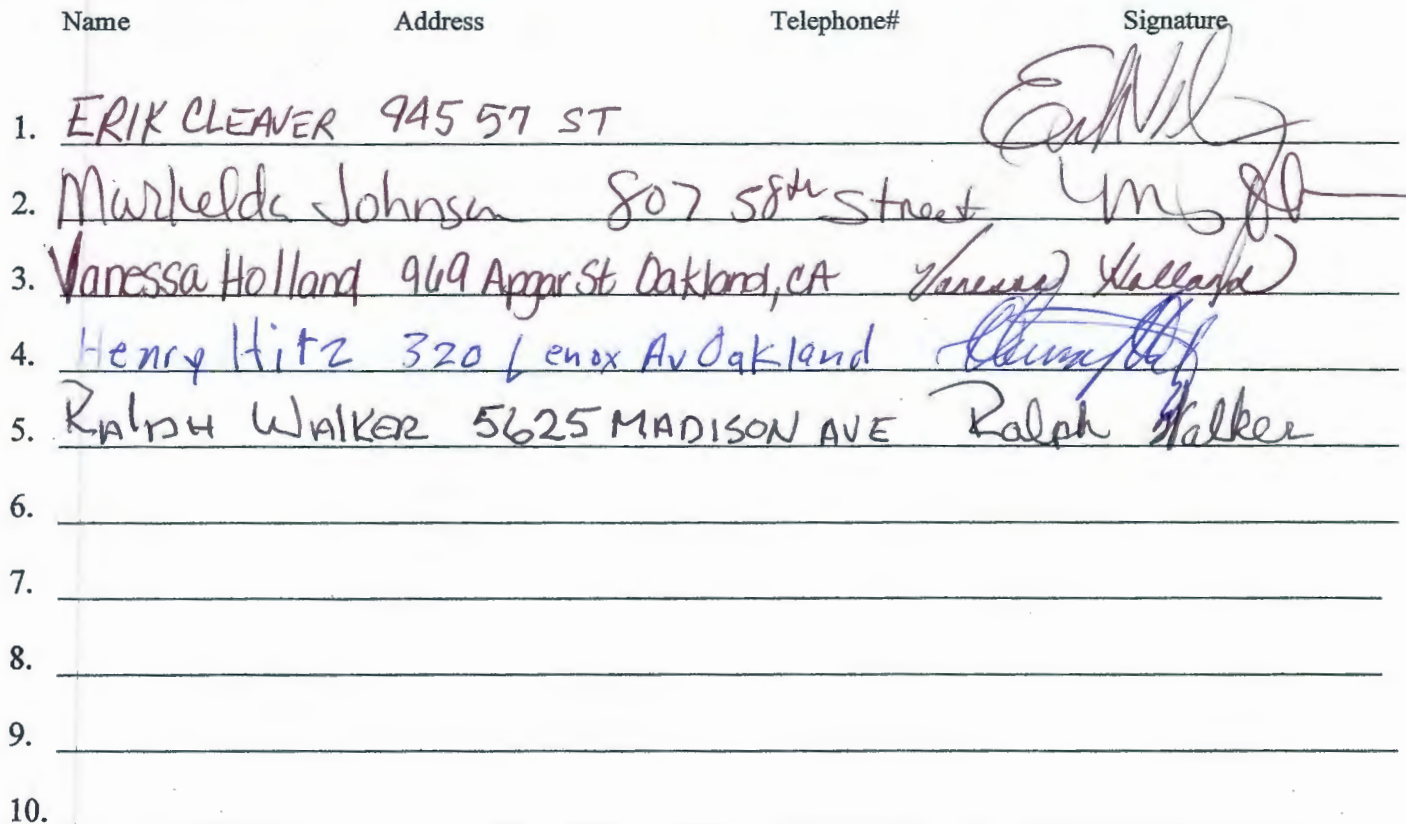 Name Address Telephone# Signature
1. ERIK CLEAVER 945 57 ST
2. Johnson 807 58th Street
3. Vanessa Holland 969 Apgar St Oakland, CA Vanessa Holland
4. Henry Hitz 320 Lenox Av Oakland
5. RALPH WALKER 5625 MADISON AVE Ralph Walker
6.
7.
8.
9.
10.